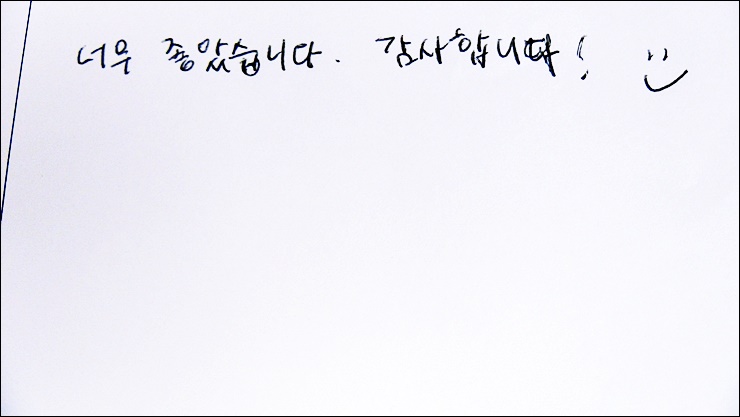 너무 좋았습니다. 감사합니다! :)